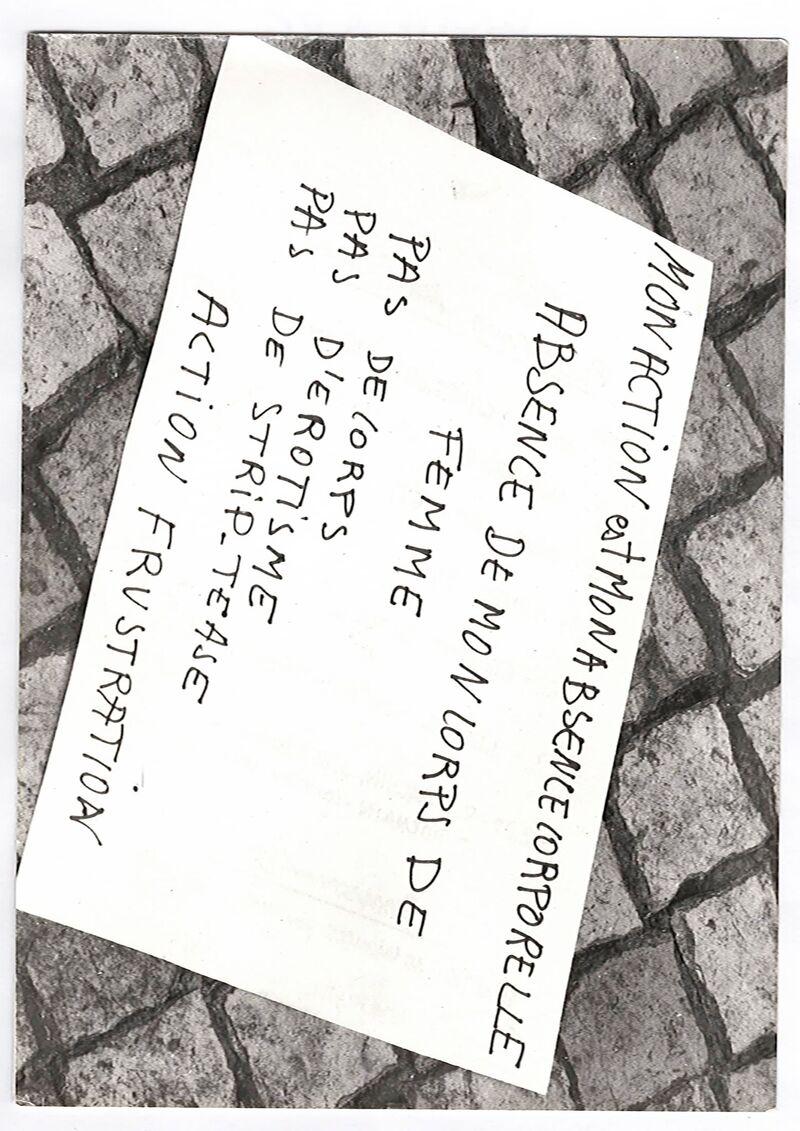 MON ACTION est MON ABSENCE CORPORELLE
ABSENCE DE MON CORPS DE
FEMME
PAS DE CORPS
PAS D'EROTISME
PAS DE STRIP-TEASE
ACTION FRUSTRATION